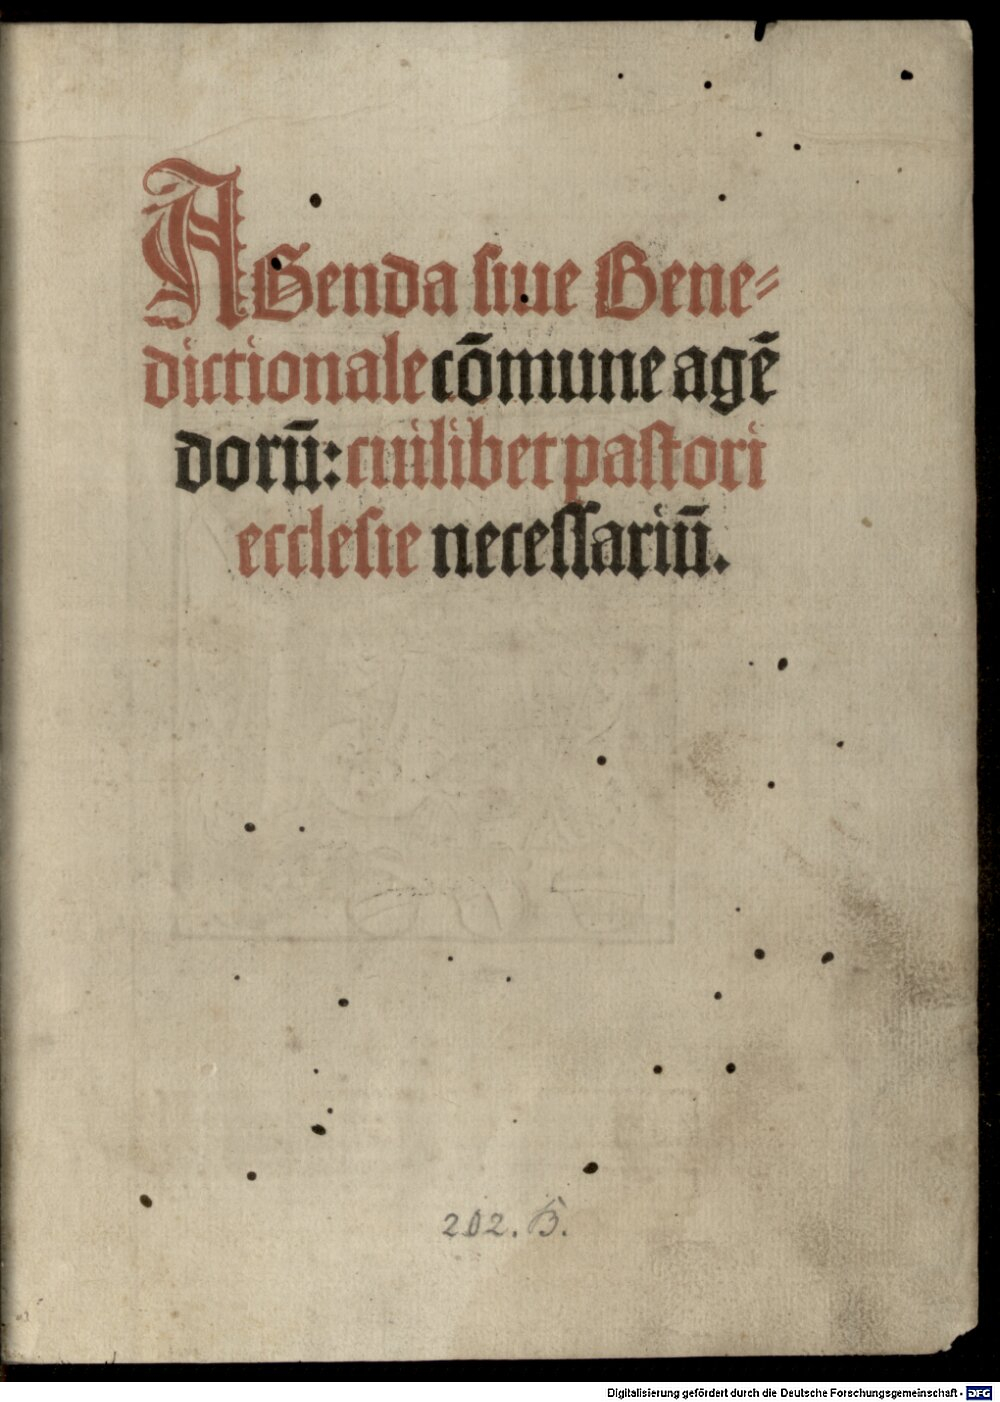 AGenda siue Bene⸗
dictionale cōmune agē
dorū: cuilibet pastori
ecclesie necessariū.
202. B.
Digitalisierung gefördert durch die Deutsche Forschungsgemeinschaft - DFG